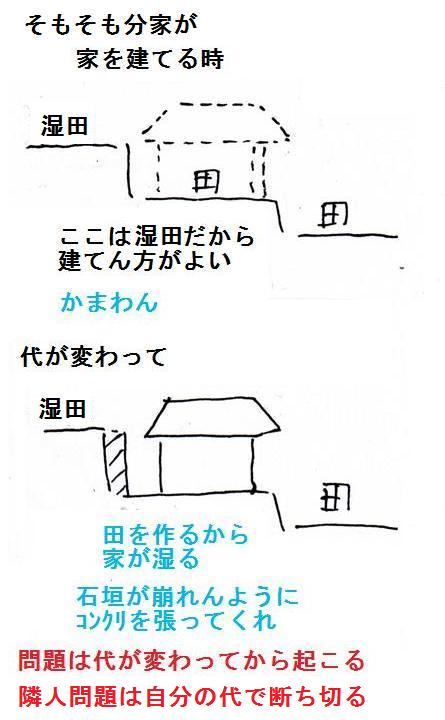 そもそも分家が
家を建てる時
湿田
田
田
ここは湿田だから
建てん方がよい
かまわん
代が変わって
湿田
田
田を作るから
家が湿る
石垣が崩れんように
ｺﾝｸﾘを張ってくれ
問題は代が変わってから起こる
隣人問題は自分の代で断ち切る